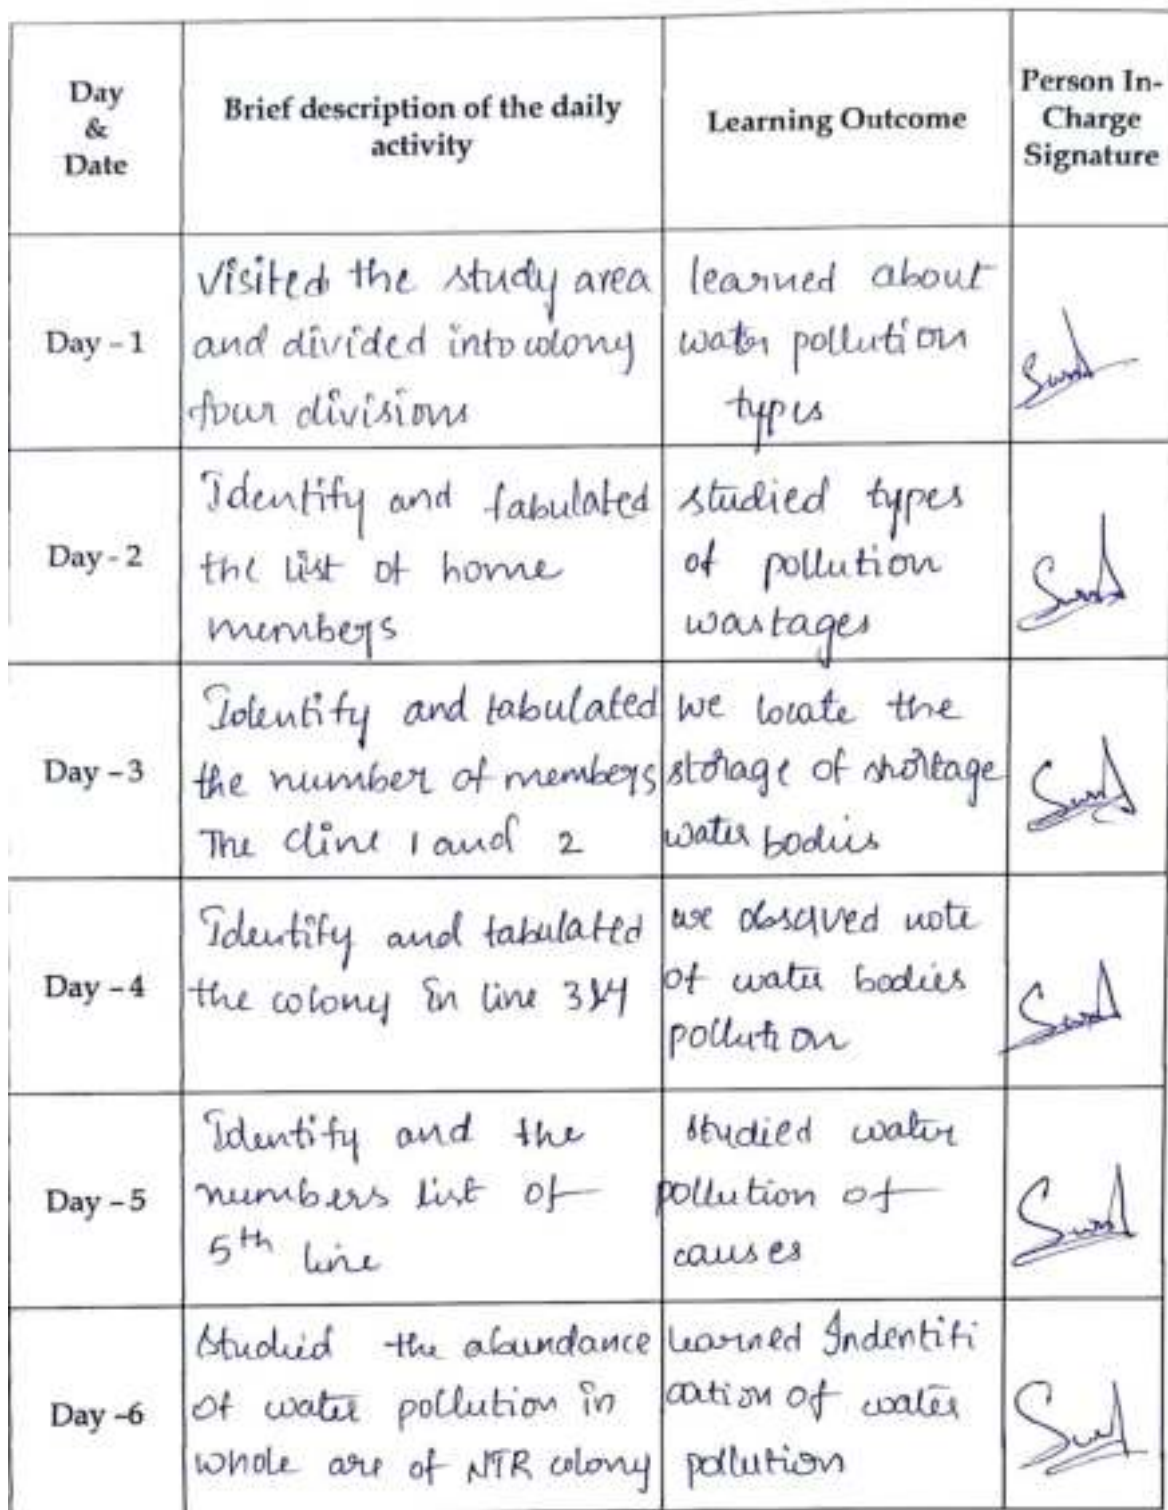 Day
&
Date
Brief description of the daily
activity
Learning Outcome
Person In-
Charge
Signature
Day - 1
Visited the study area
and divided into colony
four divisions
learned about
water pollution
types
Day - 2
Identify and tabulated
the list of home
members
studied types
of pollution
wastages
Day - 3
Identify and tabulated
the number of members
The Cline 1 and 2
we locate the
storage of shortage
water bodies
Day - 4
Identify and tabulated
the colony in line 3&4
we observed note
of water bodies
pollution
Day - 5
Identify and the
numbers list of
5th line
studied water
pollution of
causes
Day -6
Studied the abundance
of water pollution in
whole are of NTR colony
learned Indentifi
cation of water
pollution